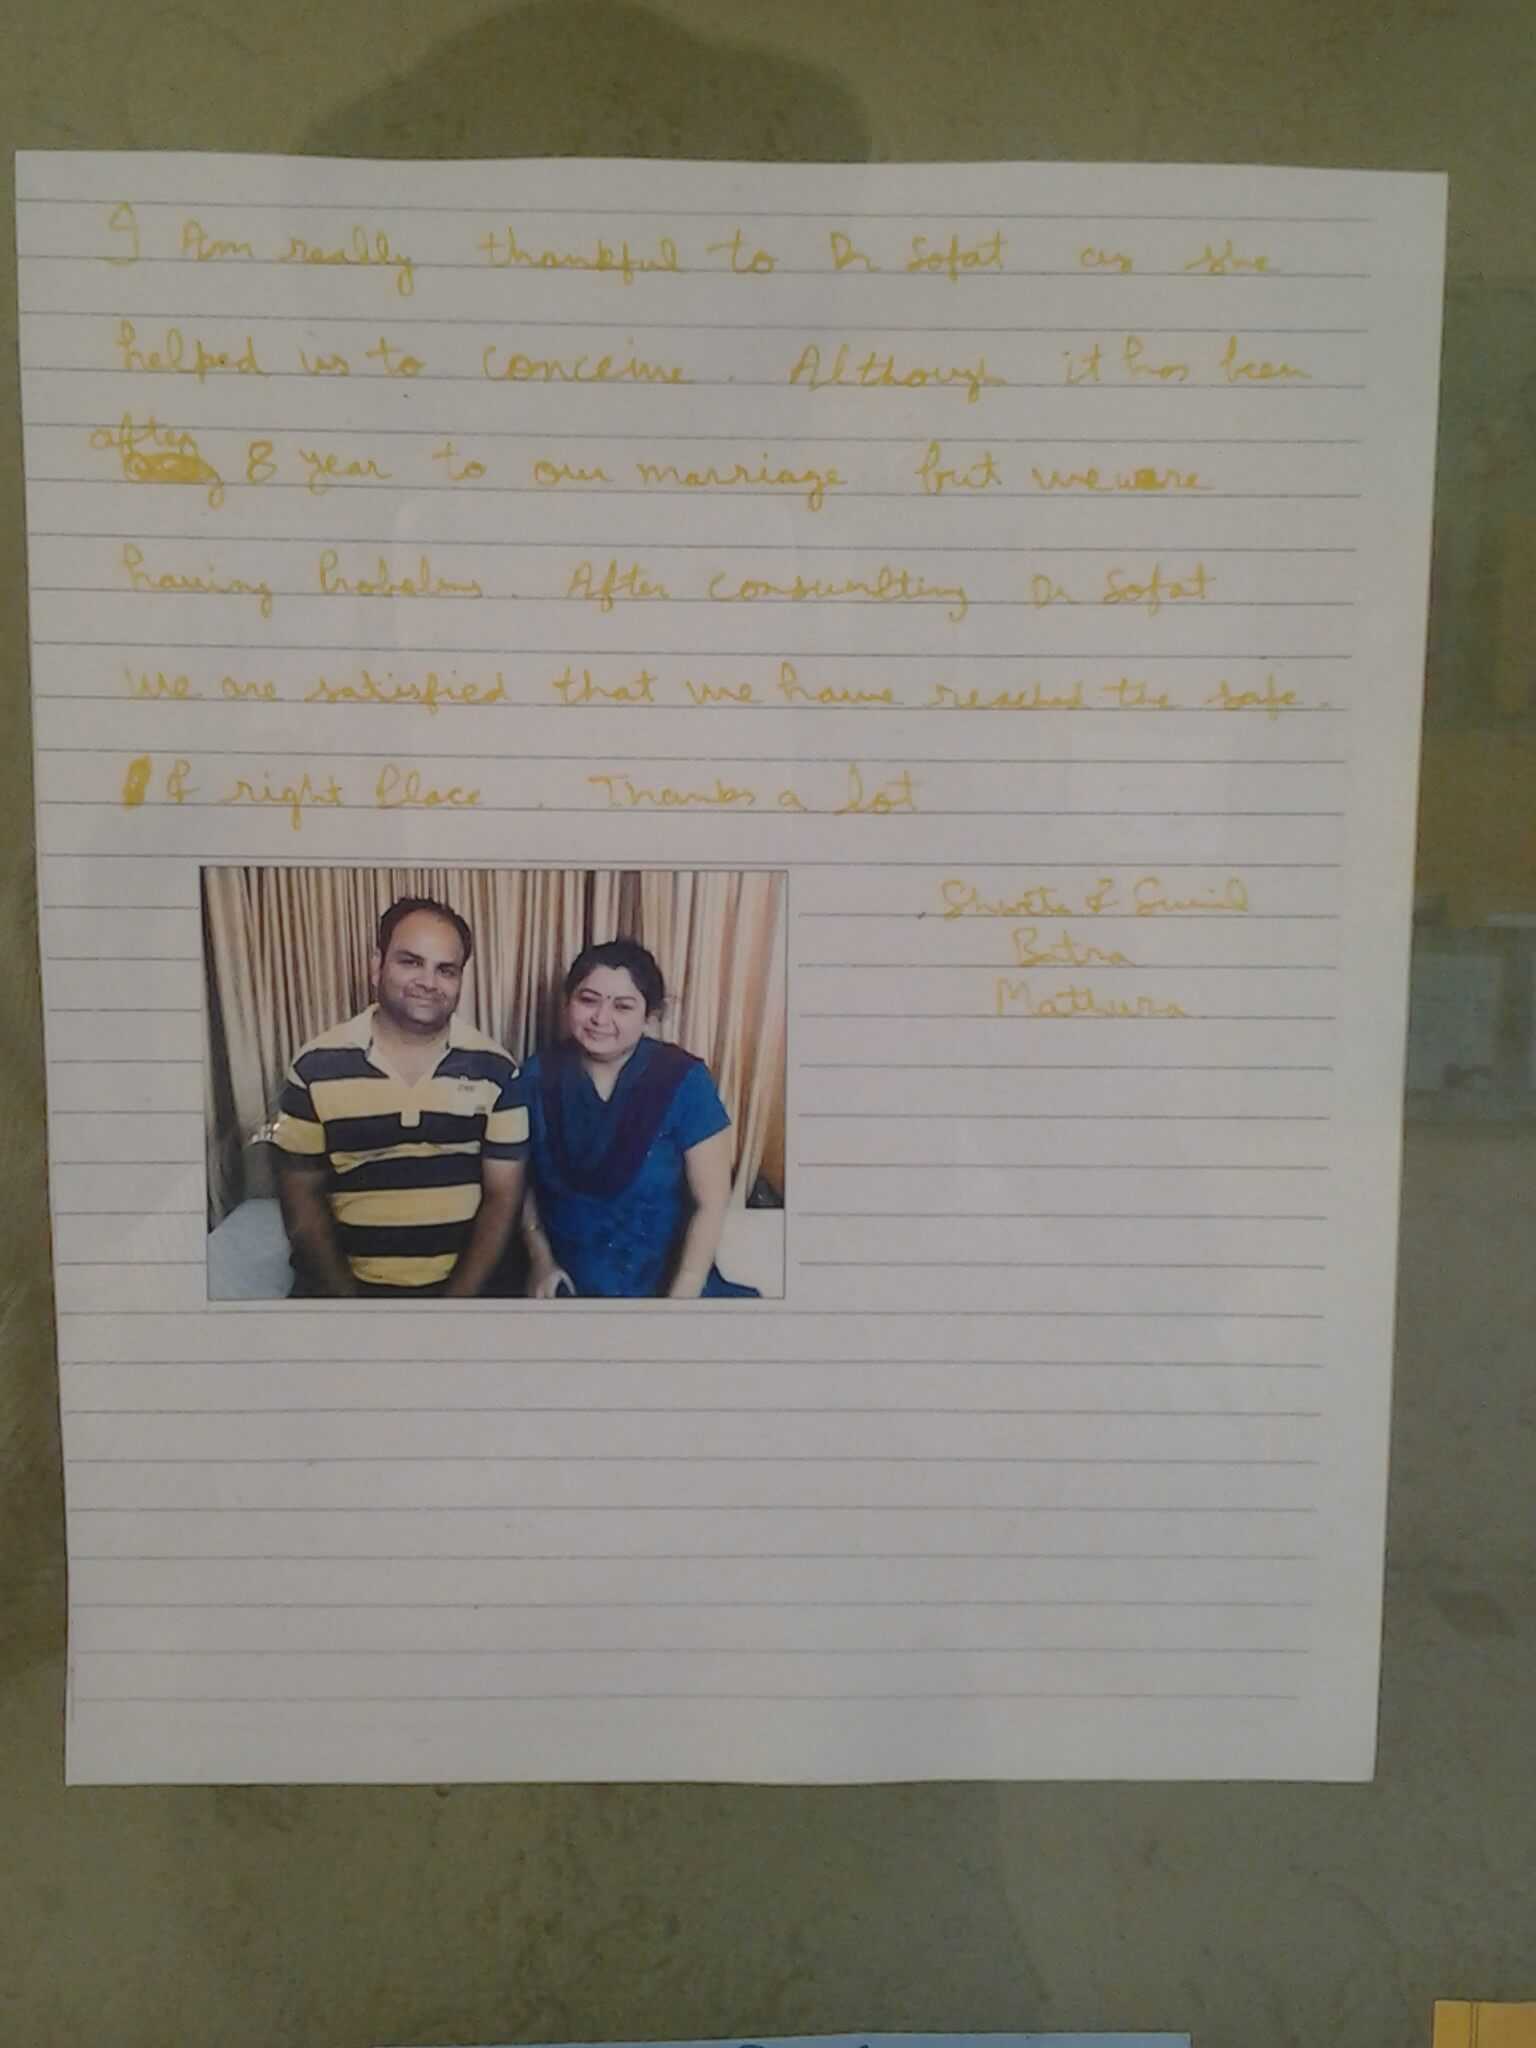 I Am really thankful to Dr Sofat as she
helped us to conceive. Although it has been
after 8 year to our marriage but we were
having Probelms. After consuulting Dr Sofat
we are satisfied that we have reached the safe
& right Place. Thanks a lot
Shweta & Sunil
Batra
Mathura